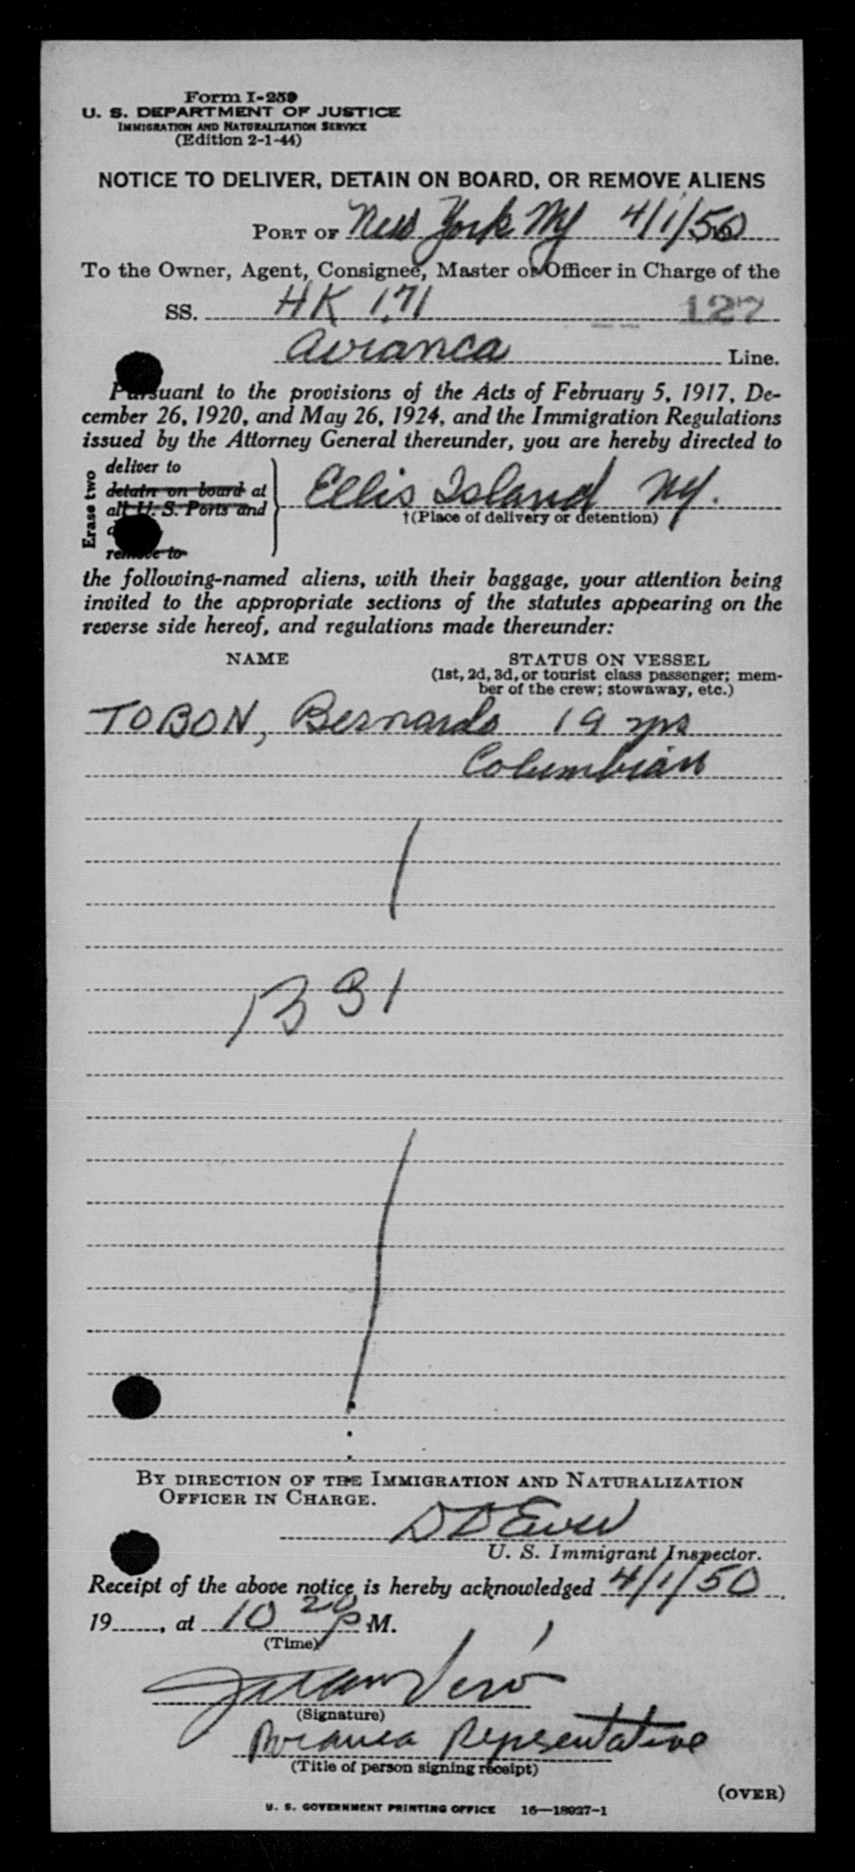 Form I-259
U. S. DEPARTMENT OF JUSTICE
IMMIGRATION AND NATURALIZATION SERVICE
(Edition 2-1-44)
NOTICE TO DELIVER, DETAIN ON BOARD, OR REMOVE ALIENS
PORT OF New York NY 4/1/50
To the Owner, Agent, Consignee, Master or Officer in Charge of the
SS. HK 171 127
Avianca Line.
Pursuant to the provisions of the Acts of February 5, 1917, De-
cember 26, 1920, and May 26, 1924, and the Immigration Regulations
issued by the Attorney General thereunder, you are hereby directed to
Erase two
deliver to
detain on board at
all U. S. Ports and
remove to
Ellis Island NY.
†(Place of delivery or detention)
the following-named aliens, with their baggage, your attention being
invited to the appropriate sections of the statutes appearing on the
reverse side hereof, and regulations made thereunder:
NAME STATUS ON VESSEL
(1st, 2d, 3d, or tourist class passenger; mem-
ber of the crew; stowaway, etc.)
TOBON, Bernardo 19 yrs
Columbian
1331
BY DIRECTION OF THE IMMIGRATION AND NATURALIZATION
OFFICER IN CHARGE.
U. S. Immigrant Inspector.
Receipt of the above notice is hereby acknowledged 4/1/50,
19......, at 10 20 P M.
(Time)
(Signature)
Avianca Representative
(Title of person signing receipt)
(OVER)
U. S. GOVERNMENT PRINTING OFFICE 16—18027-1